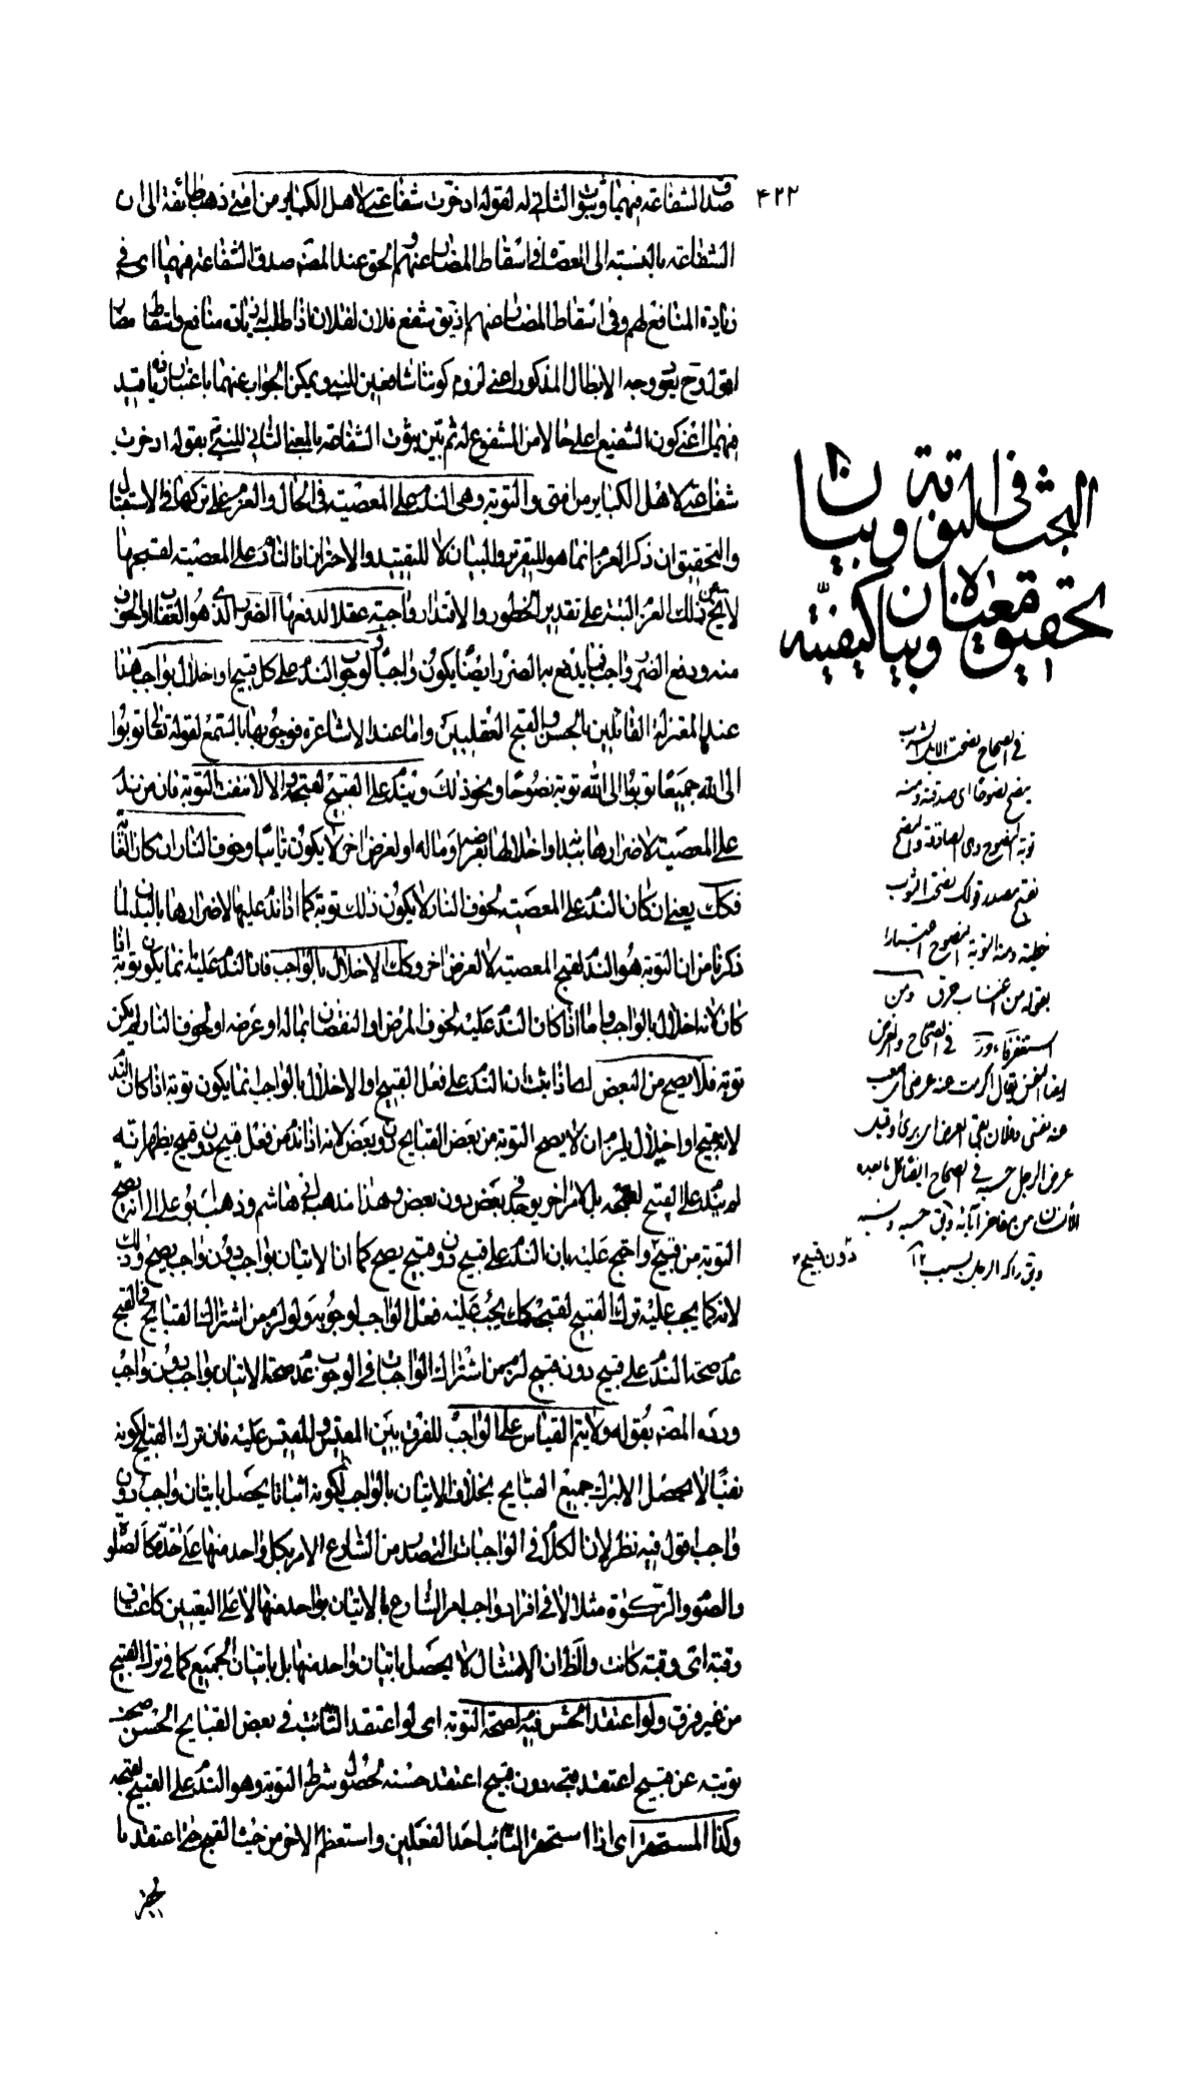 ۴۲۲
صدق الشفاعة فيهما وثبوت الثاني له لقوله ادخرت شفاعتي لاهل الكبائر من امتي ذهب طائفة الى ان
الشفاعة بالنسبة الى العصاة في اسقاط المضار عنهم والحق عند المصنف صدق الشفاعة فيهما اى في
زيادة المنافع لهم وفى اسقاط المضار عنهم اذ يق شفع فلان لفلان اذا طلب له زيادة منافع او اسقاط مضار
اقول وح يعود وجه الابطال المذكور اعني لزوم كوننا شافعين للنبي ويمكن الجواب عنهما باعتبار زيادة قيد
فيهما اعني كون الشفيع اعلى حالا من المشفوع له ثم بين ثبوت الشفاعة بالمعنى الثاني للنبي بقوله ادخرت
شفاعتي لاهل الكبائر من امتى والتوبة وهى الندم على المعصية فى الحال والعزم على تركها في الاستقبال
والتحقيق ان ذكر العزم انما هو للتقرير والبيان لا للتقييد والاحتراز اذ النادم على المعصية لقبحها
لا يخ عن ذلك العزم البتة على تقدير الخطور والاقتدار واجبة عقلا لدفعها الضرر الذى هو العقاب او الخوف
منه ودفع الضرر واجب فما يدفع به الضرر ايضا يكون واجبا ولوجوب الندم على كل قبيح او اخلال بواجب هذا
عند المعتزلة القائلين بالحسن والقبح العقليين واما عند الاشاعرة فوجوبها بالسمع لقوله تعالى توبوا
الى الله جميعا توبوا الى الله توبة نصوحا ونحو ذلك ويندم على القبيح لقبحه والا لانتفت التوبة فان من ندم
على المعصية لاضرارها ببدنه او اخلالها بعرضه او ماله او لغرض اخر لا يكون تائبا وخوف النار ان كان الغاية
فكك يعني ان كان الندم على المعصية لخوف النار لا يكون ذلك توبة كما اذا ندم عليها لاضرارها بالبدن لما
ذكرنا من ان التوبة هو الندم لقبح المعصية لا لغرض اخر وكك الاخلال بالواجب فان الندم عليه انما يكون توبة اذا
كان لانه اخلال بالواجب واما اذا كان الندم عليه لخوف المرض او النقصان بماله او عرضه او لخوف النار لم يكن
توبة فلا يصح من البعض لما ذا ثبت ان الندم على فعل القبيح او الاخلال بالواجب انما يكون توبة اذا كان الندم
لانه قبيح او اخلال يلزم ان لا يصح التوبة من بعض القبايح دون بعض لانه اذا ندم من فعل قبيح دون قبيح يظهر انه
لم يندم على القبيح لقبحه بل لامر اخر يوجد في بعض دون بعض وهذا مذهب ابى هاشم وذهب ابو على الى انه يصح
التوبة من قبيح واحتج عليه بان الندم على قبيح دون قبيح يصح كما ان الاتيان بواجب دون واجب يصح وذلك
لانه كما يجب عليه ترك القبيح لقبحه كك يجب عليه فعل الواجب لوجوبه ولو لزم من اشتراك القبايح في القبح
عدم صحة الندم على قبيح دون قبيح لزم من اشتراك الواجبات في الوجوب عدم صحة الاتيان بواجب دون واجب
ورده المصنف بقوله ولا يتم القياس على الواجب للفرق بين المقيس والمقيس عليه فان ترك القبيح لكونه
نفيا لا يحصل الا بترك جميع القبايح بخلاف الاتيان بالواجب لكونه اثباتا يحصل باتيان واجب دون
واجب اقول فيه نظر لان الكلام فى الواجبات التى صدر من الشارع الامر بكل واحد منها على حدة كالصلوة
والصوم والزكوة مثلا لا في افراد واجب امر الشارع بالاتيان بواحد منها لا على التعيين كاعتاق
رقبة اى رقبة كانت والظ ان الامتثال لا يحصل باتيان واحد منها بل باتيان الجميع كما فى ترك القبيح
من غير فرق ولو اعتقد الحسن فيه لصحة التوبة اى لو اعتقد التائب فى بعض القبايح الحسن صحت
توبته عن قبيح اعتقد قبحه دون قبيح اعتقد حسنه لحصول شرط التوبة وهو الندم على القبيح لقبحه
وكذا المستحقر اى اذا استحقر التائب احد الفعلين واستعظم الاخر من حيث القبح حتى اعتقد ما
البحث فى التوبة وبيان
تحقيق معناه
وبيان كيفيته
فى الصحاح نصحت الابل الشرب
ينصح نصوحا اى صدقته ومنه
توبة النصوح وهى الصادقة والنصح
بفتح مصدر قولك نصحت الثوب
خطته ومنه التوبة النصوح اعتبارا
بقوله من اغتاب خرق ومن
استغفر رفأ فى الصحاح والعرض
ايضا النفس يقال اكرمت عنه عرضى اى صنت
عنه نفسى وفلان نقى العرض اى برئ وقيل
عرض الرجل حسبه فى الصحاح ايضا كل ما يعده
الانسان من مفاخر آبائه
دون قبيح